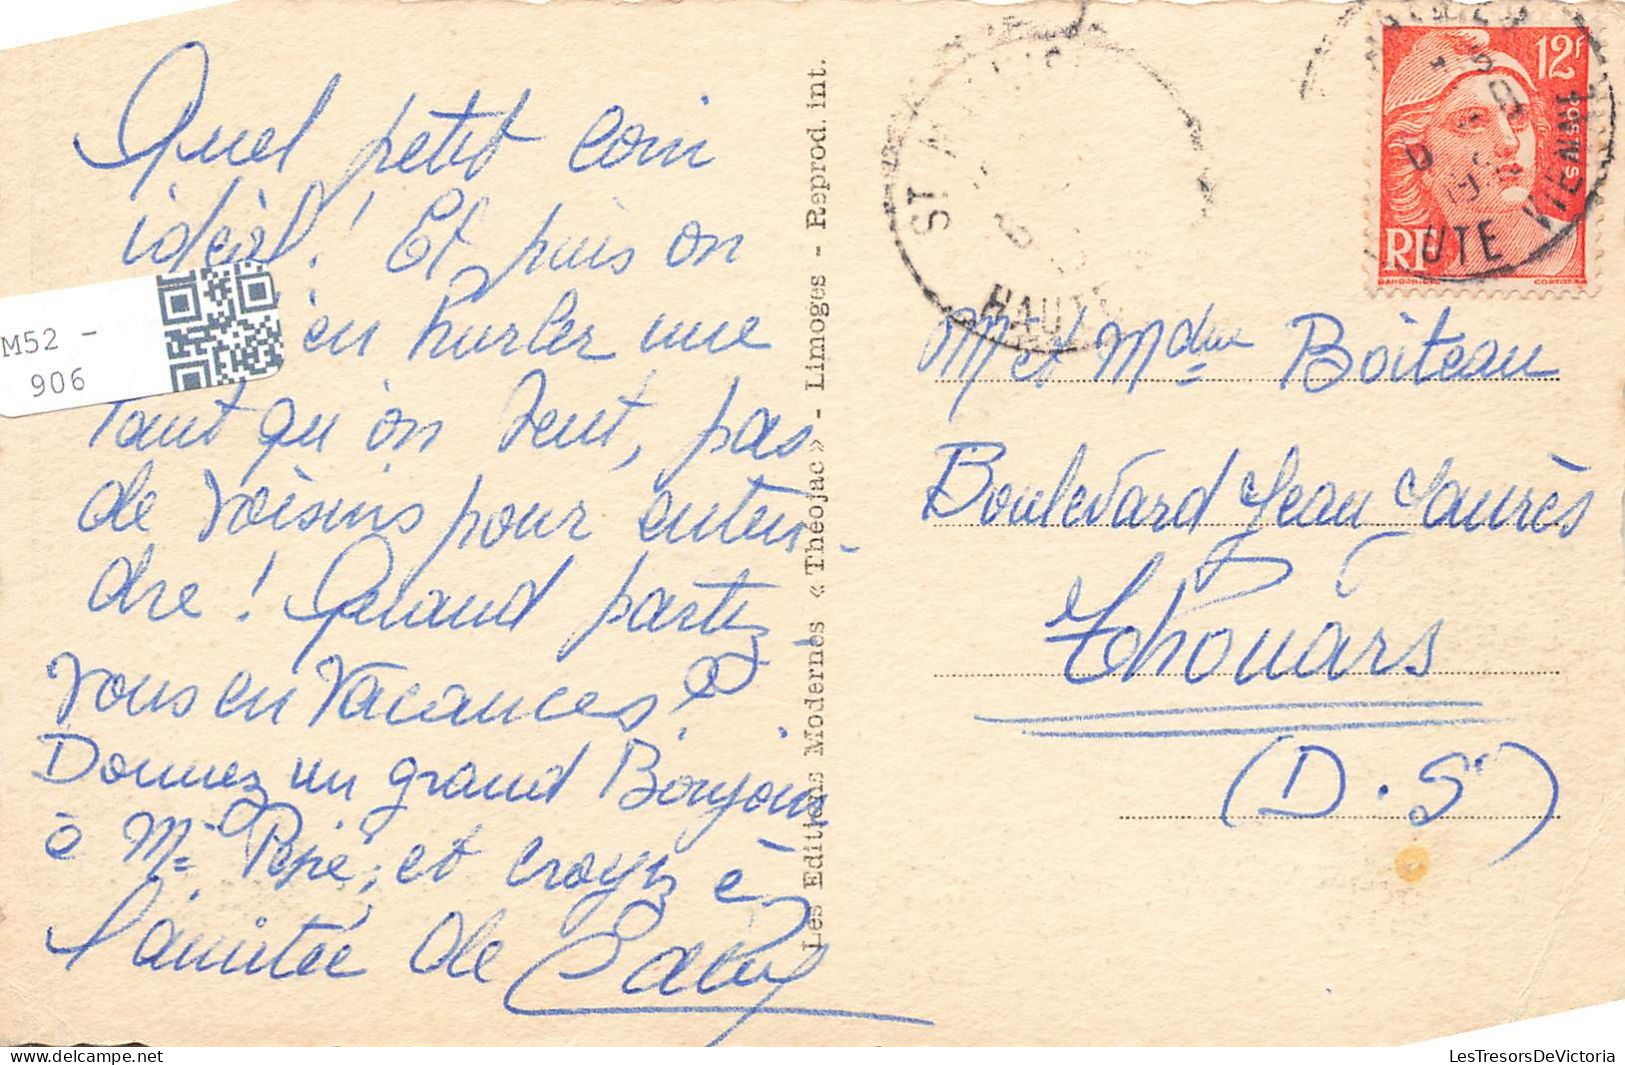 Quel petit coin
idéal ! Et puis on
en hurler une
tant qu'on veut, pas
de voisins pour enten-
dre ! Quand partez
vous en vacances ?
Donnez un grand Bonjour
à Mr Pépé, et croyez à
l'amitié de
M52 -
906
Les Editions Modernes « Théojac » - Limoges - Reprod. int.
ST
HAUTE
12f
POSTES
RF
UTE VIENNE
Mr et Mdme Boiteau
Boulevard Jean Jaurès
Thouars
(D.S)
LesTresorsDeVictoria